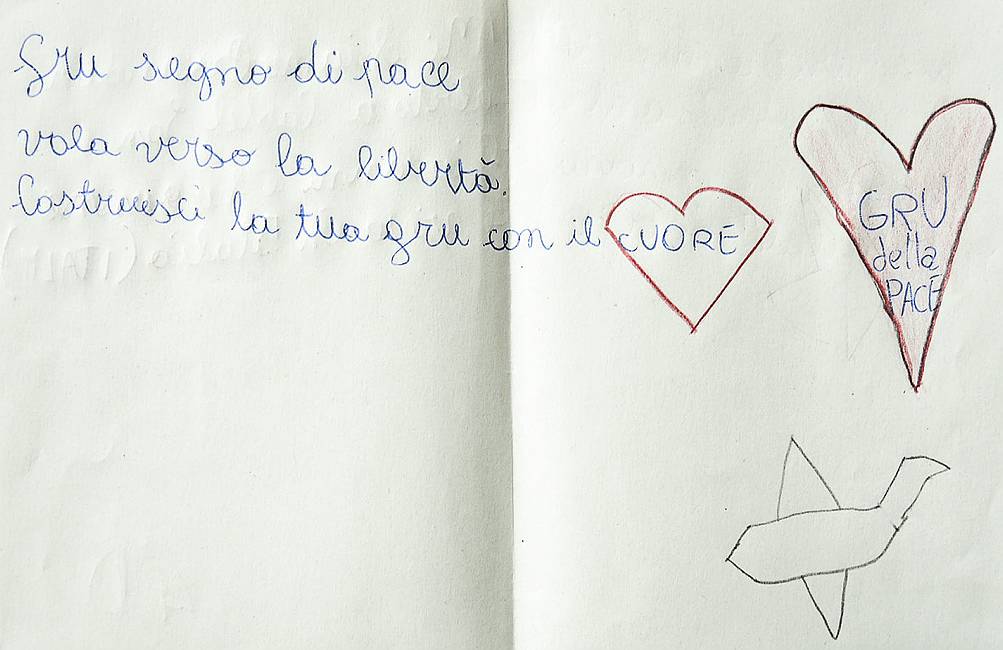 Gru segno di pace
vola verso la libertà.
Costruisci la tua gru con il CUORE
GRU
della
PACE